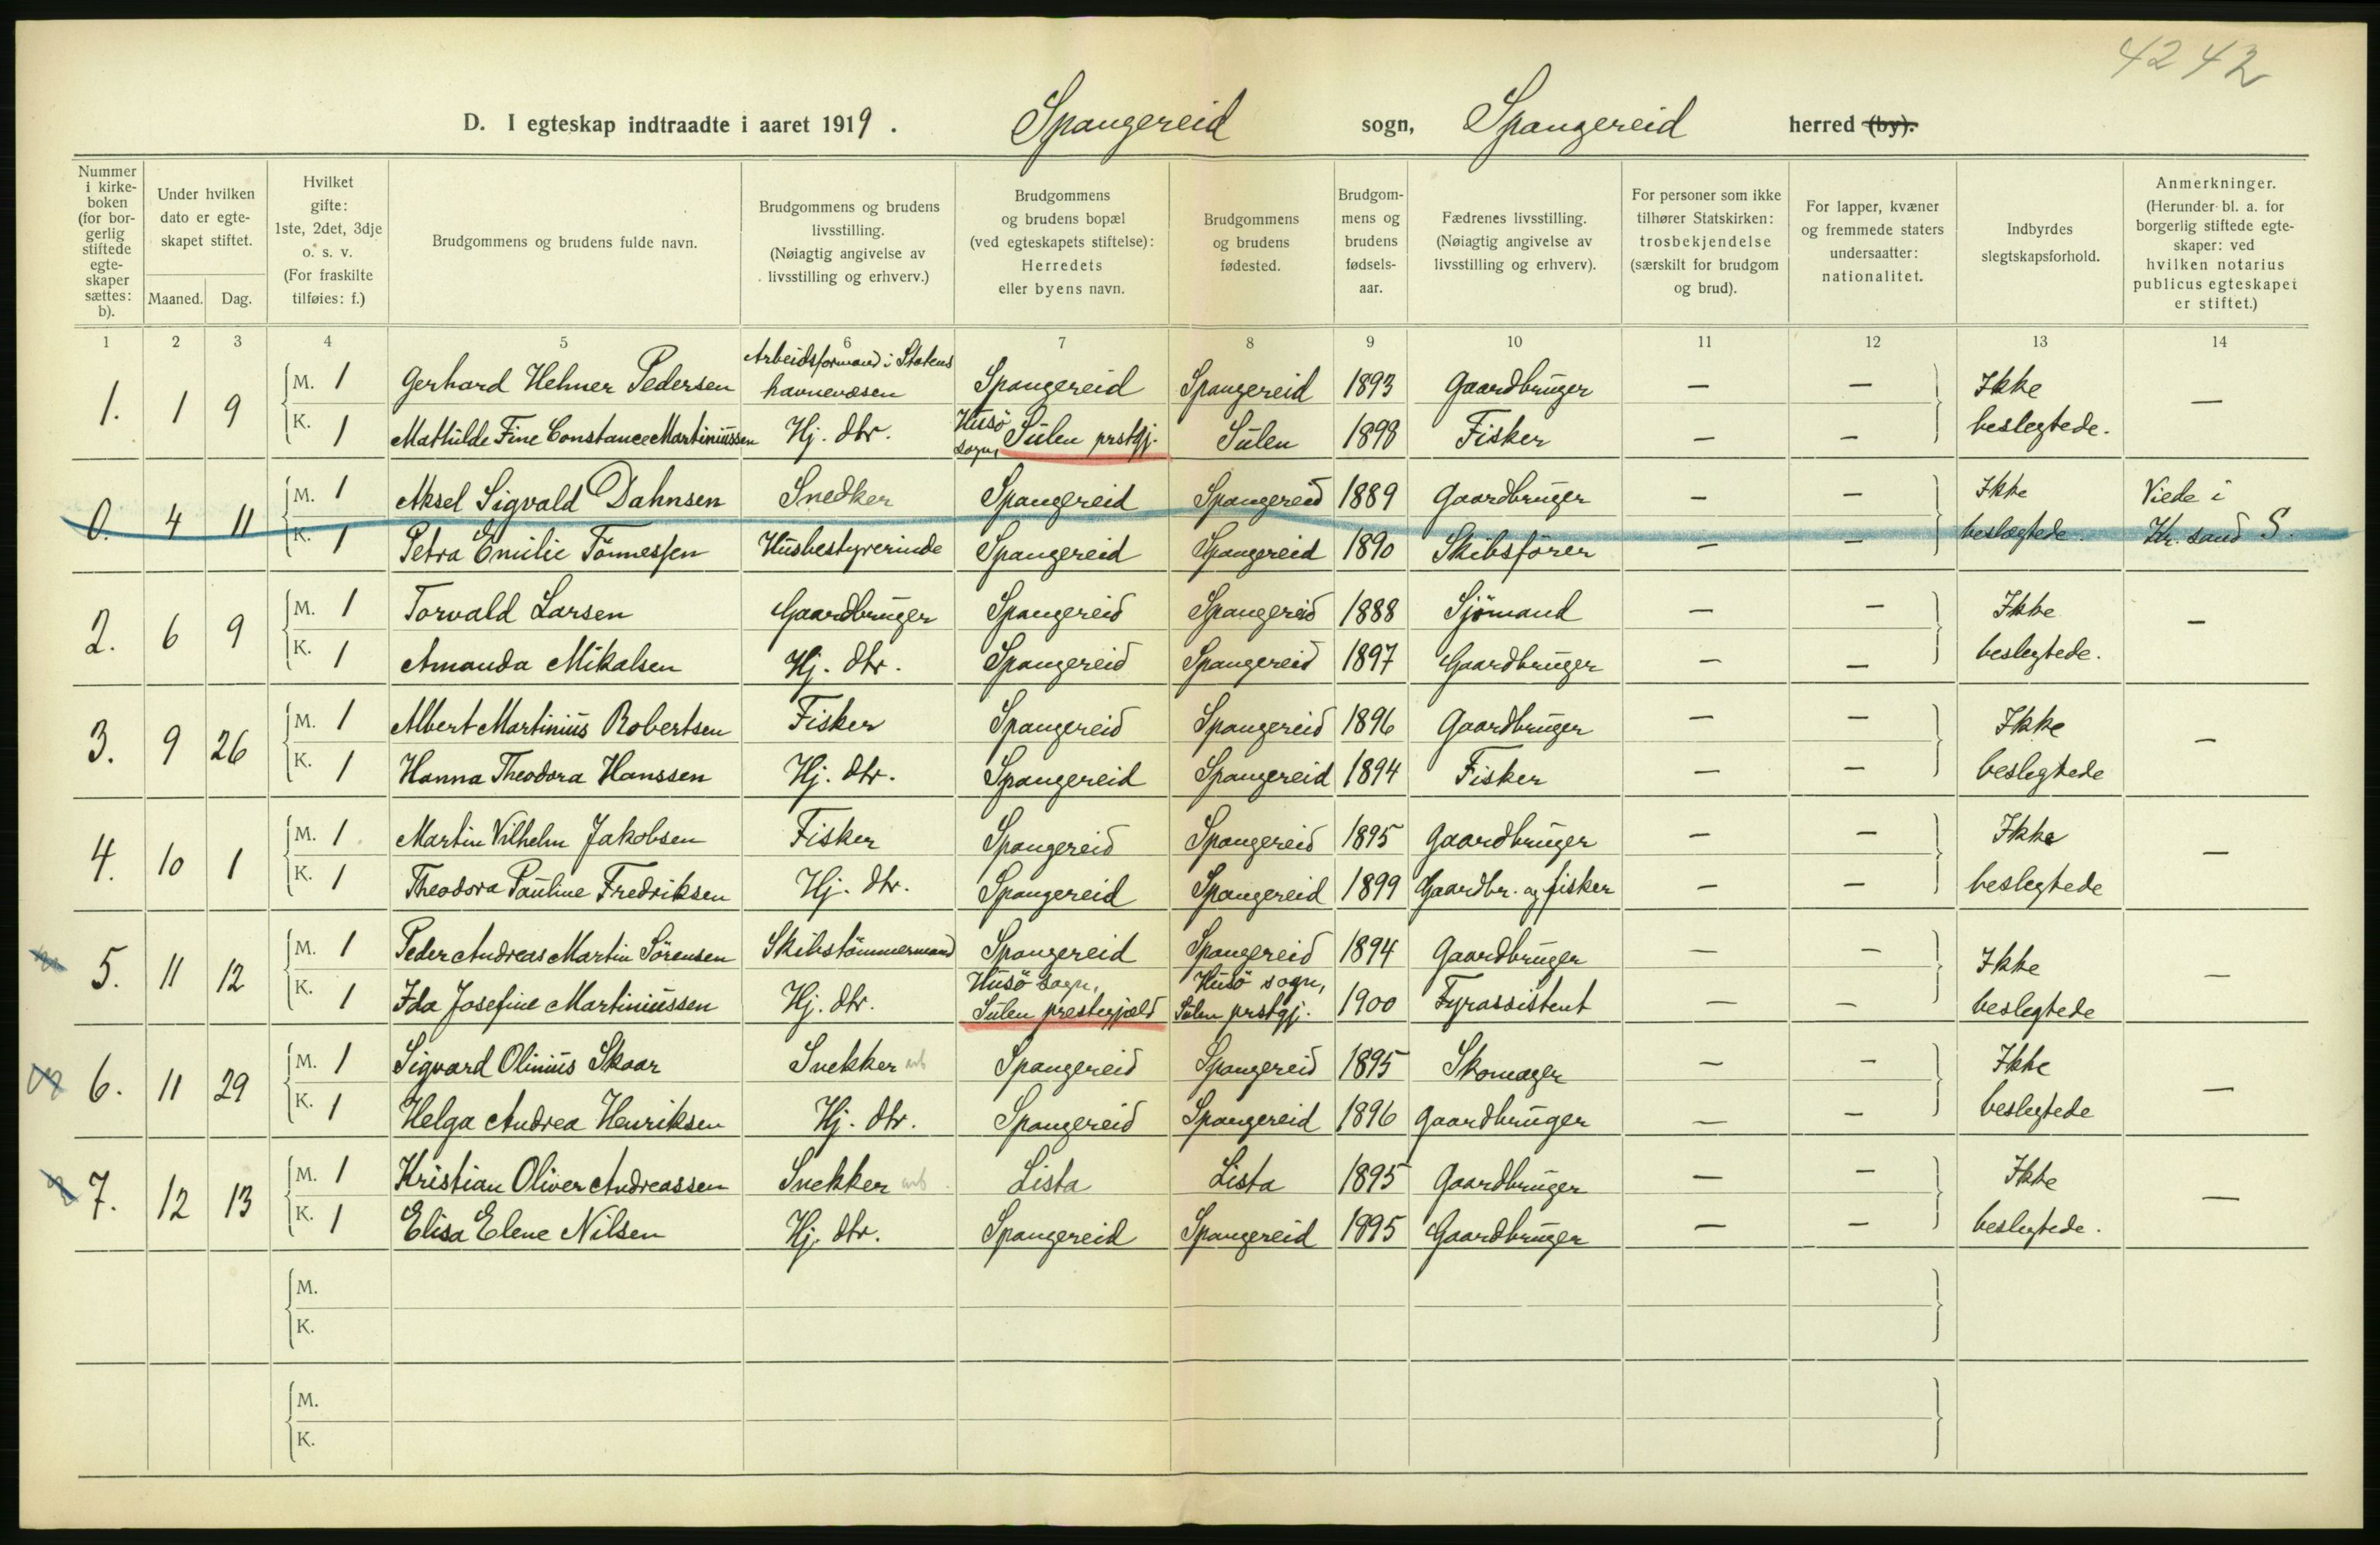 4242
D. I egteskap indtraadte i aaret 1919. Spangereid sogn, Spangereid herred (by).
Nummer i kirkeboken (for borgerlig stiftede egteskaper sættes: b).
Under hvilken dato er egteskapet stiftet.
Maaned. Dag.
Hvilket gifte: 1ste, 2det, 3dje o. s. v. (For fraskilte tilføies: f.)
Brudgommens og brudens fulde navn.
Brudgommens og brudens livsstilling. (Nøiagtig angivelse av livsstilling og erhverv.)
Brudgommens og brudens bopæl (ved egteskapets stiftelse): Herredets eller byens navn.
Brudgommens og brudens fødested.
Brudgommens og brudens fødselsaar.
Fædrenes livsstilling. (Nøiagtig angivelse av livsstilling og erhverv).
For personer som ikke tilhører Statskirken: trosbekjendelse (særskilt for brudgom og brud).
For lapper, kvæner og fremmede staters undersaatter: nationalitet.
Indbyrdes slegtskapsforhold.
Anmerkninger. (Herunder bl. a. for borgerlig stiftede egteskaper: ved hvilken notarius publicus egteskapet er stiftet.)
1 2 3 4 5 6 7 8 9 10 11 12 13 14
1. 1 9 M. 1 Gerhard Helmer Pedersen Arbeidsformand i Statens havnevæsen Spangereid Spangereid 1893 Gaardbruger — — Ikke —
K. 1 Mathilde Fine Constance Martiniussen Hj. dtr. Husö sogn, Sulen prstgj. Sulen 1898 Fisker — — beslegtede.
0. 4 11 M. 1 Aksel Sigvald Dahnsen Snedker Spangereid Spangereid 1889 Gaardbruger — — Ikke Viede i
K. 1 Petra Emilie Tönnessen Husbestyrerinde Spangereid Spangereid 1890 Skibsförer — — beslægtede. Kr. sand S.
2. 6 9 M. 1 Torvald Larsen Gaardbruger Spangereid Spangereid 1888 Sjömand — — Ikke —
K. 1 Amanda Mikalsen Hj. dtr. Spangereid Spangereid 1897 Gaardbruger — — beslegtede.
3. 9 26 M. 1 Albert Martinius Robertsen Fisker Spangereid Spangereid 1896 Gaardbruger — — Ikke —
K. 1 Hanna Theodora Hanssen Hj. dtr. Spangereid Spangereid 1894 Fisker — — beslegtede
4. 10 1 M. 1 Martin Vilhelm Jakobsen Fisker Spangereid Spangereid 1895 Gaardbruger — — Ikke —
K. 1 Theodora Pauline Fredriksen Hj. dtr. Spangereid Spangereid 1899 Gaardbr. og fisker — — beslegtede
5. 11 12 M. 1 Peder Andreas Martin Sörensen Skibstömmermand Spangereid Spangereid 1894 Gaardbruger — — Ikke —
K. 1 Ida Josefine Martiniussen Hj. dtr. Husö sogn, Sulen prestegjæld Husö sogn, Sulen prstgj. 1900 Fyrassistent — — beslegtede
6. 11 29 M. 1 Sigvard Olinius Skaar Snekker arb Spangereid Spangereid 1895 Skomager — — Ikke —
K. 1 Helga Andrea Henriksen Hj. dtr. Spangereid Spangereid 1896 Gaardbruger — — beslegtede
7. 12 13 M. 1 Kristian Oliver Andreassen Snekker arb. Lista Lista 1895 Gaardbruger — — Ikke —
K. 1 Elisa Elene Nilsen Hj. dtr. Spangereid Spangereid 1895 Gaardbruger — — beslegtede.
M.
K.
M.
K.